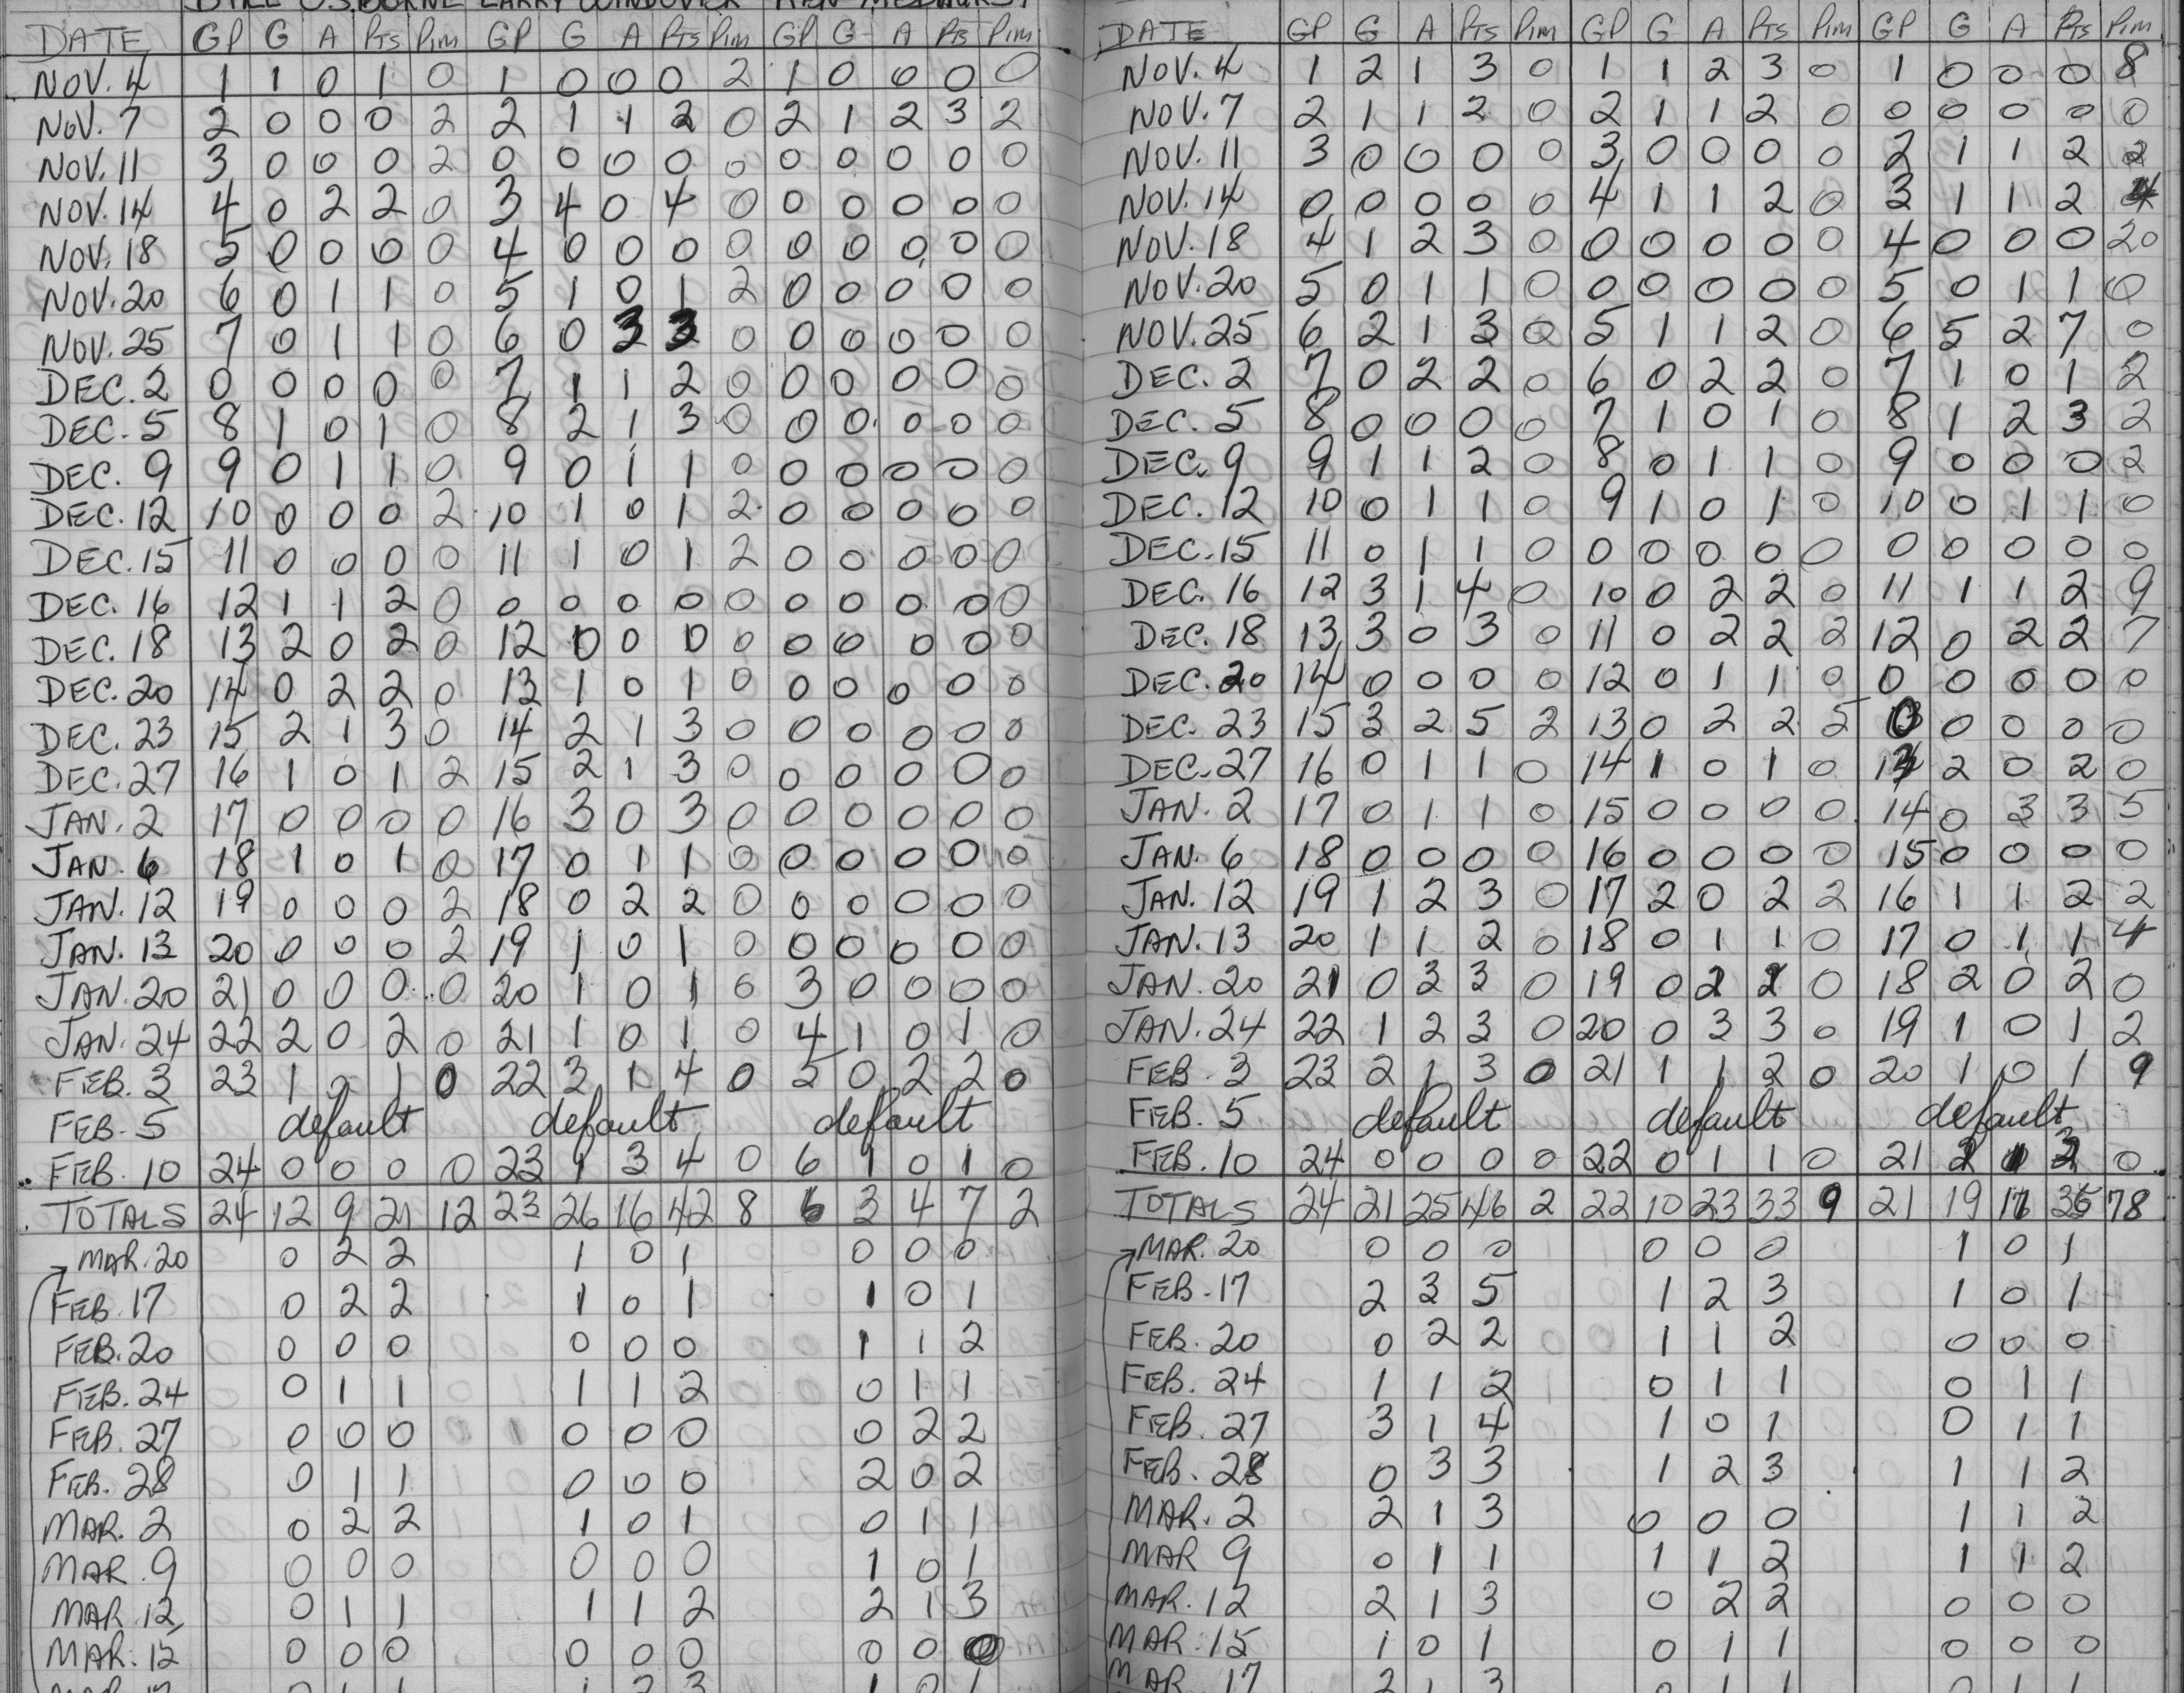 BILL OSBORNE LARRY WINDOVER KEN MEDHURST
DATE GP G A PTS PIM GP G A PTS PIM GP G A PTS PIM
NOV. 4 1 1 0 1 0 1 0 0 0 2 1 0 0 0 0
NOV. 7 2 0 0 0 2 2 1 1 2 0 2 1 2 3 2
NOV. 11 3 0 0 0 2 0 0 0 0 0 0 0 0 0 0
NOV. 14 4 0 2 2 0 3 4 0 4 0 0 0 0 0 0
NOV. 18 5 0 0 0 0 4 0 0 0 0 0 0 0 0 0
NOV. 20 6 0 1 1 0 5 1 0 1 2 0 0 0 0 0
NOV. 25 7 0 1 1 0 6 0 3 3 0 0 0 0 0 0
DEC. 2 0 0 0 0 0 7 1 1 2 0 0 0 0 0 0
DEC. 5 8 1 0 1 0 8 2 1 3 0 0 0 0 0 0
DEC. 9 9 0 1 1 0 9 0 1 1 0 0 0 0 0 0
DEC. 12 10 0 0 0 2 10 1 0 1 2 0 0 0 0 0
DEC. 15 11 0 0 0 0 11 1 0 1 2 0 0 0 0 0
DEC. 16 12 1 1 2 0 0 0 0 0 0 0 0 0 0 0
DEC. 18 13 2 0 2 0 12 0 0 0 0 0 0 0 0 0
DEC. 20 14 0 2 2 0 13 1 0 1 0 0 0 0 0 0
DEC. 23 15 2 1 3 0 14 2 1 3 0 0 0 0 0 0
DEC. 27 16 1 0 1 2 15 2 1 3 0 0 0 0 0 0
JAN. 2 17 0 0 0 0 16 3 0 3 0 0 0 0 0 0
JAN. 6 18 1 0 1 0 17 0 1 1 0 0 0 0 0 0
JAN. 12 19 0 0 0 2 18 0 2 2 0 0 0 0 0 0
JAN. 13 20 0 0 0 2 19 1 0 1 0 0 0 0 0 0
JAN. 20 21 0 0 0 0 20 1 0 1 0 3 0 0 0 0
JAN. 24 22 2 0 2 0 21 1 0 1 0 4 1 0 1 0
FEB. 3 23 1 0 1 0 22 3 1 4 0 5 0 2 2 0
FEB. 5 default default default
FEB. 10 24 0 0 0 0 23 1 3 4 0 6 1 0 1 0
TOTALS 24 12 9 21 12 23 26 16 42 8 6 3 4 7 2
MAR. 20 0 2 2 1 0 1 0 0 0
FEB. 17 0 2 2 1 0 1 1 0 1
FEB. 20 0 0 0 0 0 0 1 1 2
FEB. 24 0 1 1 1 1 2 0 1 1
FEB. 27 0 0 0 0 0 0 0 2 2
FEB. 28 0 1 1 0 0 0 2 0 2
MAR. 2 0 2 2 1 0 1 0 1 1
MAR. 9 0 0 0 0 0 0 1 0 1
MAR. 12 0 1 1 1 1 2 2 1 3
MAR. 15 0 0 0 0 0 0 0 0 0
DATE GP G A PTS PIM GP G A PTS PIM GP G A PTS PIM
NOV. 4 1 2 1 3 0 1 1 2 3 0 1 0 0 0 8
NOV. 7 2 1 1 2 0 2 1 1 2 0 0 0 0 0 0
NOV. 11 3 0 0 0 0 3 0 0 0 0 2 1 1 2 2
NOV. 14 0 0 0 0 0 4 1 1 2 0 3 1 1 2 4
NOV. 18 4 1 2 3 0 0 0 0 0 0 4 0 0 0 20
NOV. 20 5 0 1 1 0 0 0 0 0 0 5 0 1 1 0
NOV. 25 6 2 1 3 0 5 1 1 2 0 6 5 2 7 0
DEC. 2 7 0 2 2 0 6 0 2 2 0 7 1 0 1 2
DEC. 5 8 0 0 0 0 7 1 0 1 0 8 1 2 3 2
DEC. 9 9 1 1 2 0 8 0 1 1 0 9 0 0 0 2
DEC. 12 10 0 1 1 0 9 1 0 1 0 10 0 1 1 0
DEC. 15 11 0 1 1 0 0 0 0 0 0 0 0 0 0 0
DEC. 16 12 3 1 4 0 10 0 2 2 0 11 1 1 2 9
DEC. 18 13 3 0 3 0 11 0 2 2 2 12 0 2 2 7
DEC. 20 14 0 0 0 0 12 0 1 1 0 0 0 0 0 0
DEC. 23 15 3 2 5 2 13 0 2 2 5 0 0 0 0 0
DEC. 27 16 0 1 1 0 14 1 0 1 0 13 2 0 2 0
JAN. 2 17 0 1 1 0 15 0 0 0 0 14 0 3 3 5
JAN. 6 18 0 0 0 0 16 0 0 0 0 15 0 0 0 0
JAN. 12 19 1 2 3 0 17 2 0 2 2 16 1 1 2 2
JAN. 13 20 1 1 2 0 18 0 1 1 0 17 0 1 1 4
JAN. 20 21 0 3 3 0 19 0 0 18 2 0 2 0
JAN. 24 22 1 2 3 0 20 0 3 3 0 19 1 0 1 2
FEB. 3 23 2 1 3 0 21 1 1 2 0 20 1 0 1 9
FEB. 5 default default default
FEB. 10 24 0 0 0 0 22 0 1 1 0 21 2 1 3 0
TOTALS 24 21 25 46 2 22 10 23 33 9 21 19 78
MAR. 20 0 0 0 0 0 0 1 0 1
FEB. 17 2 3 5 1 2 3 1 0 1
FEB. 20 0 2 2 1 1 2 0 0 0
FEB. 24 1 1 2 0 1 1 0 1 1
FEB. 27 3 1 4 1 0 1 0 1 1
FEB. 28 0 3 3 1 2 3 1 1 2
MAR. 2 2 1 3 0 0 0 1 1 2
MAR 9 0 1 1 1 1 2 1 1 2
MAR. 12 2 1 3 0 2 2 0 0 0
MAR. 15 1 0 1 0 1 1 0 0 0
MAR. 17 2 1 3 0 1 1 0 1 1